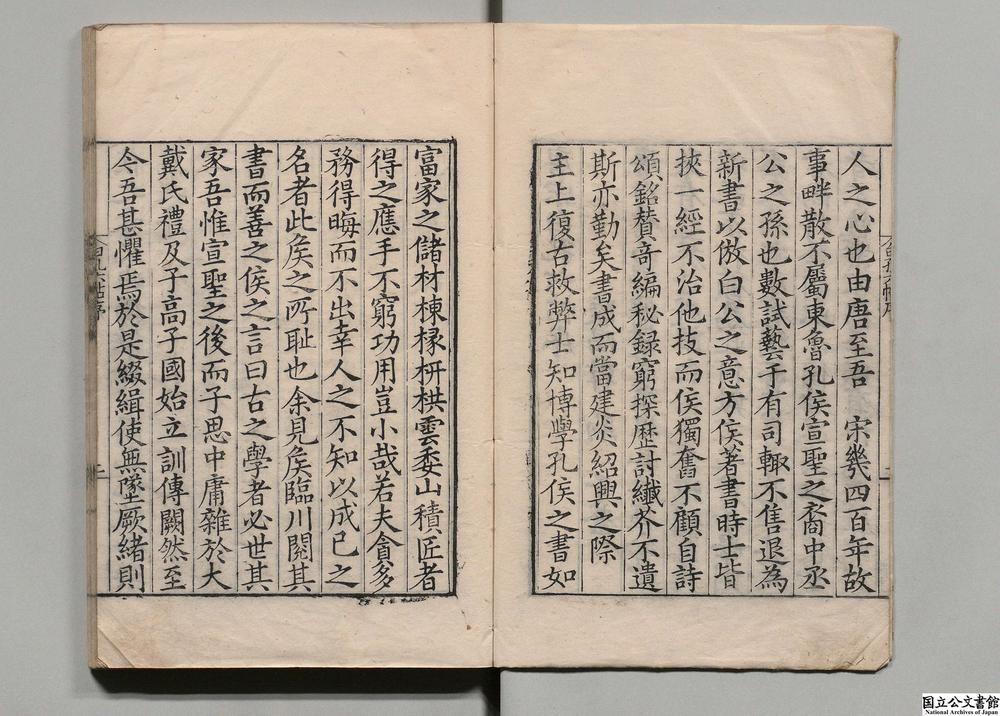 人之心也由唐至吾 宋幾四百年故
事畔散不屬東魯孔侯宣聖之裔中丞
公之孫也數試藝于有司輙不售退為
新書以倣白公之意方侯著書時士皆
挾一經不治他技而侯獨奮不顧自詩
頌銘賛竒編秘録窮探歴討纎芥不遺
斯亦勤矣書成而當建炎紹興之際
主上復古救弊士知博學孔侯之書如
富家之儲材棟椽枅栱雲委山積匠者
得之應手不窮功用豈小哉若夫貪多
務得晦而不出幸人之不知以成已之
名者此侯之所恥也余見侯臨川閱其
書而善之侯之言曰古之學者必世其
家吾惟宣聖之後而子思中庸雜於大
戴氏禮及子高子國始立訓傳闕然至
今吾甚懼焉於是綴緝使無墜厥緒則
国立公文書館
National Archives of Japan